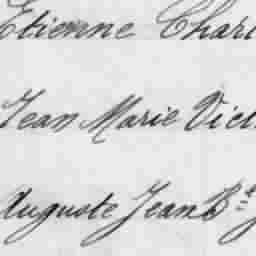 Etienne Charl
Jean Marie Vict
Auguste Jean Bte